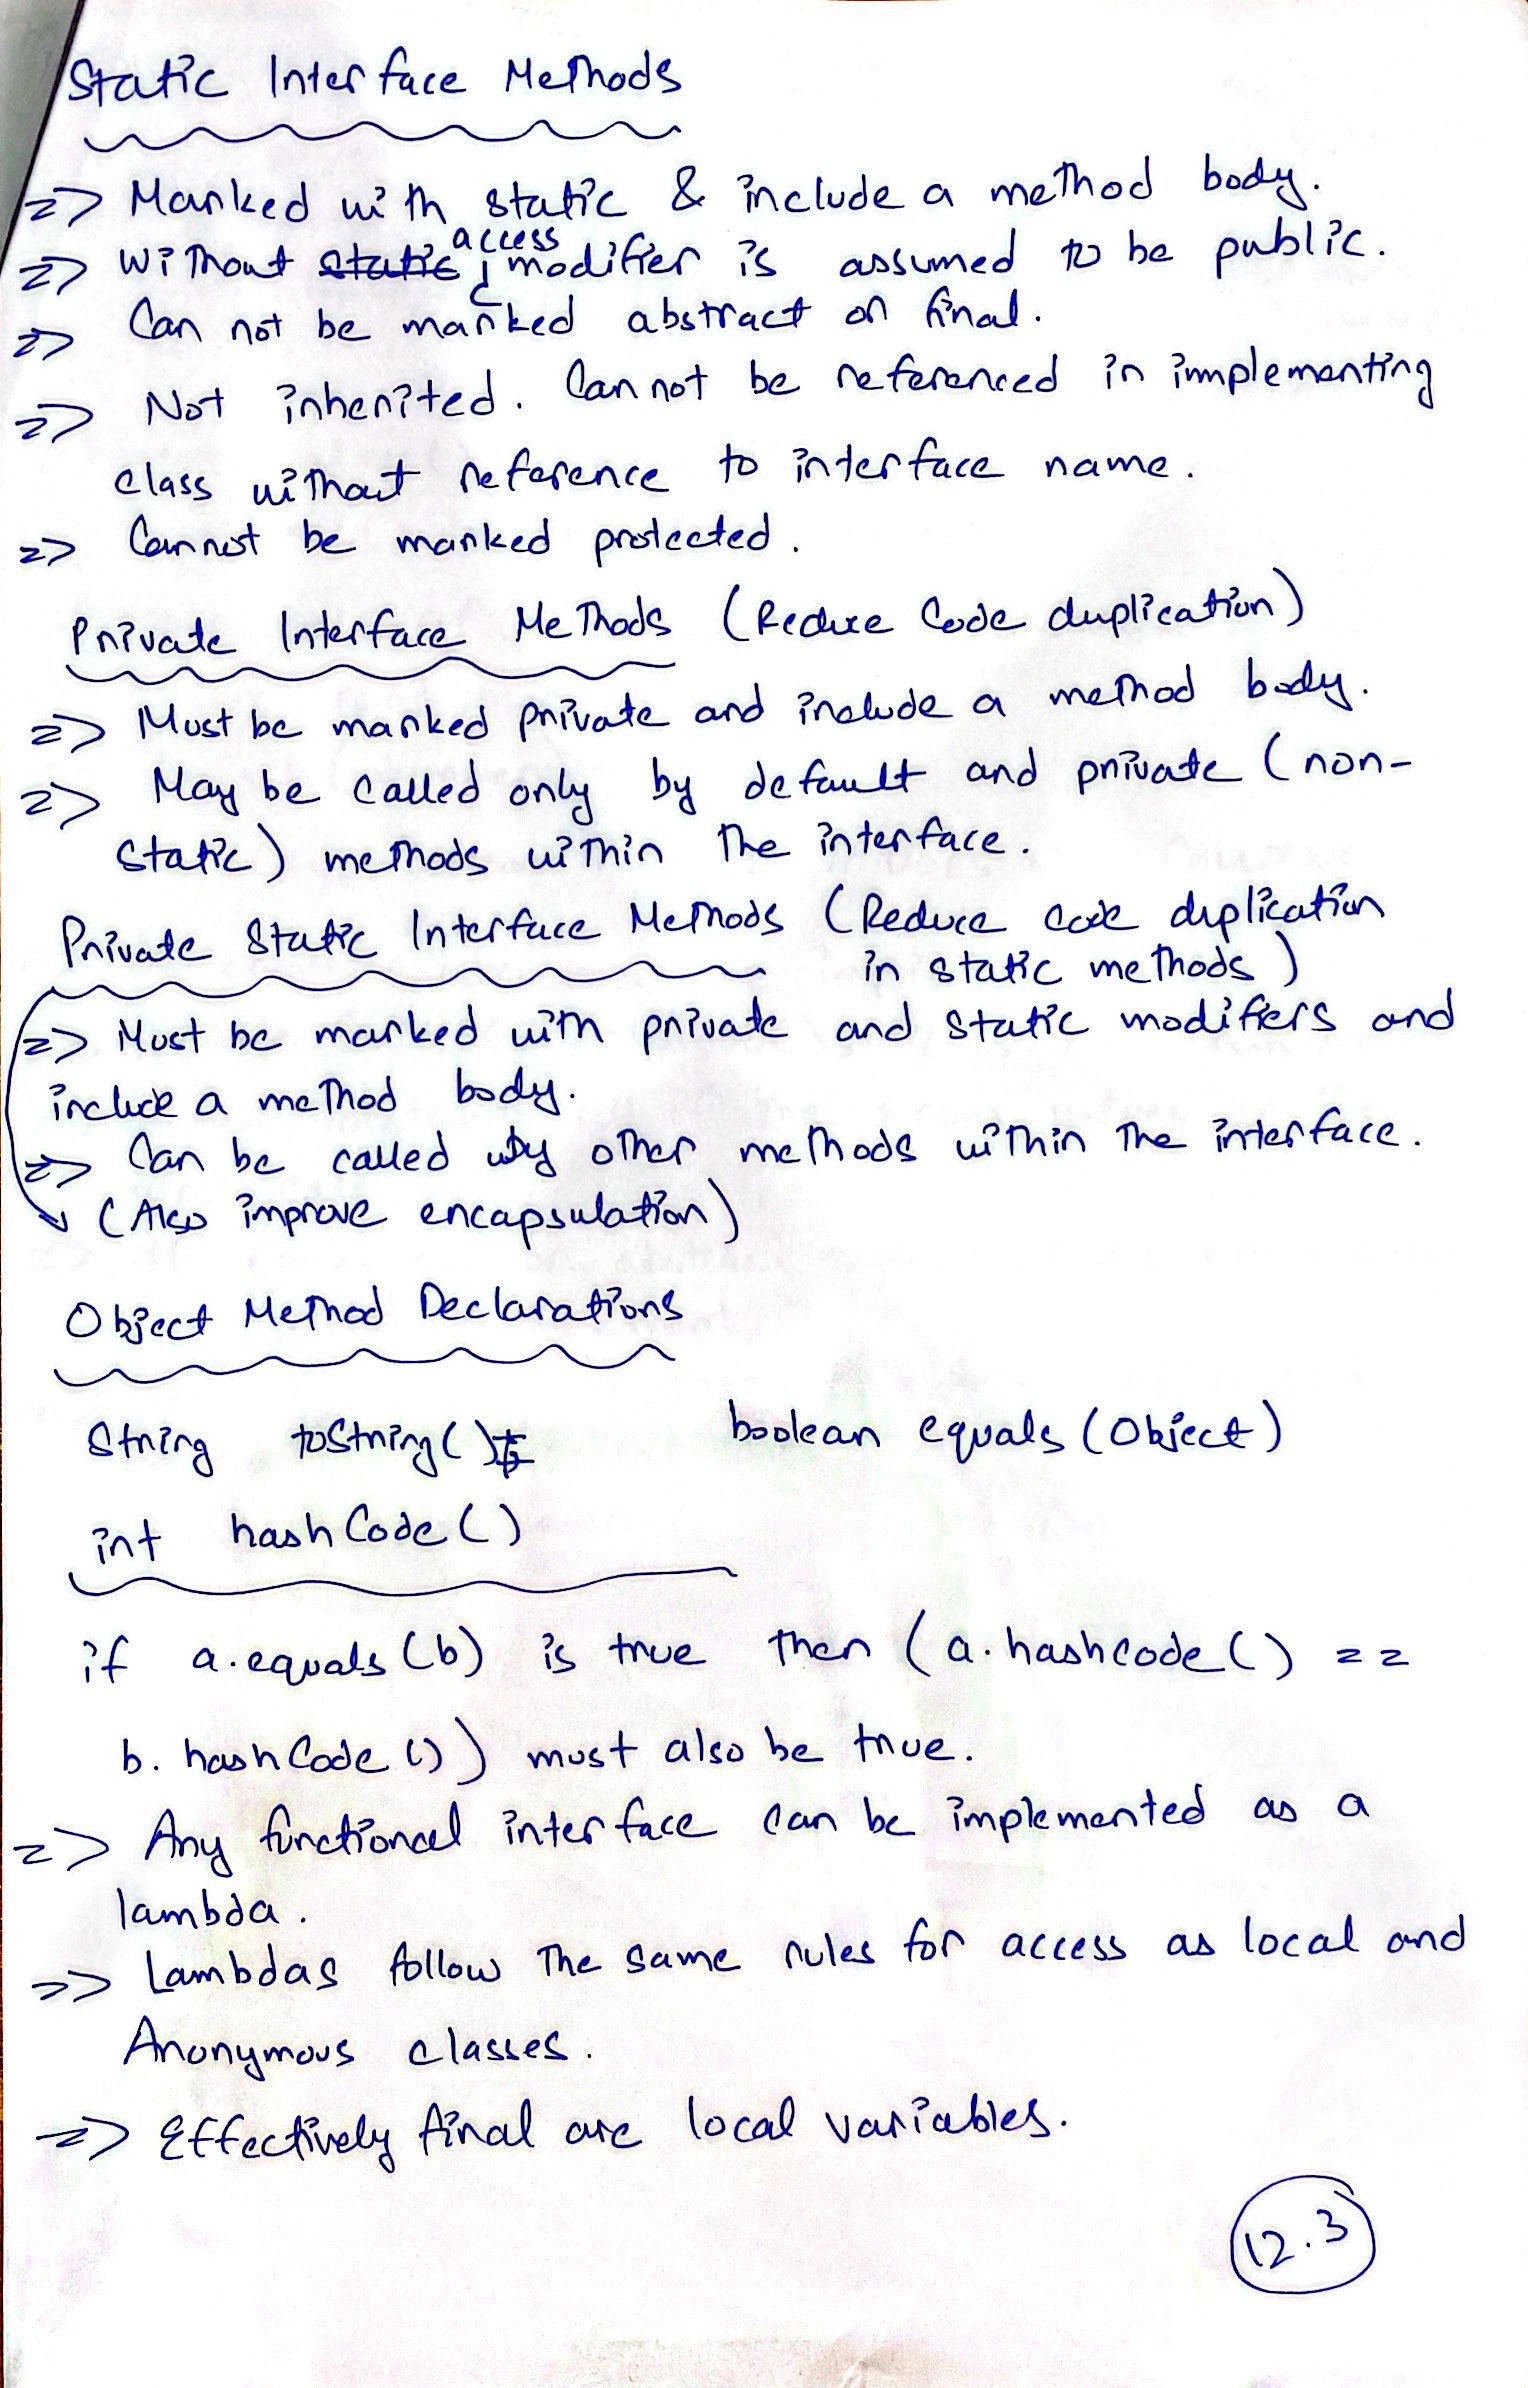 Static Interface Methods
=> Marked with static & include a method body.
=> Without access modifier is assumed to be public.
=> Can not be marked abstract or final.
=> Not inherited. Cannot be referenced in implementing
class without reference to interface name.
=> Cannot be marked protected.
Private Interface Methods (Reduce Code duplication)
=> Must be marked private and include a method body.
=> May be called only by default and private (non-
static) methods within the interface.
Private Static Interface Methods (Reduce code duplication
in static methods)
=> Must be marked with private and static modifiers and
include a method body.
=> Can be called by other methods within the interface.
(Also improve encapsulation)
Object Method Declarations
String toString() boolean equals(Object)
int hashCode()
if a.equals(b) is true then (a.hashcode() ==
b.hashCode()) must also be true.
=> Any functional interface can be implemented as a
lambda.
=> Lambdas follow the same rules for access as local and
Anonymous classes.
=> Effectively final are local variables.
12.3